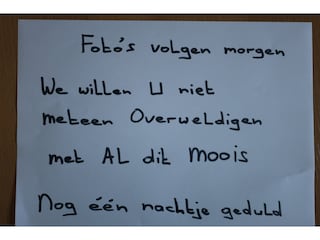 Foto's volgen morgen
We willen U niet
meteen Overweldigen
met AL dit moois
Nog één nachtje geduld